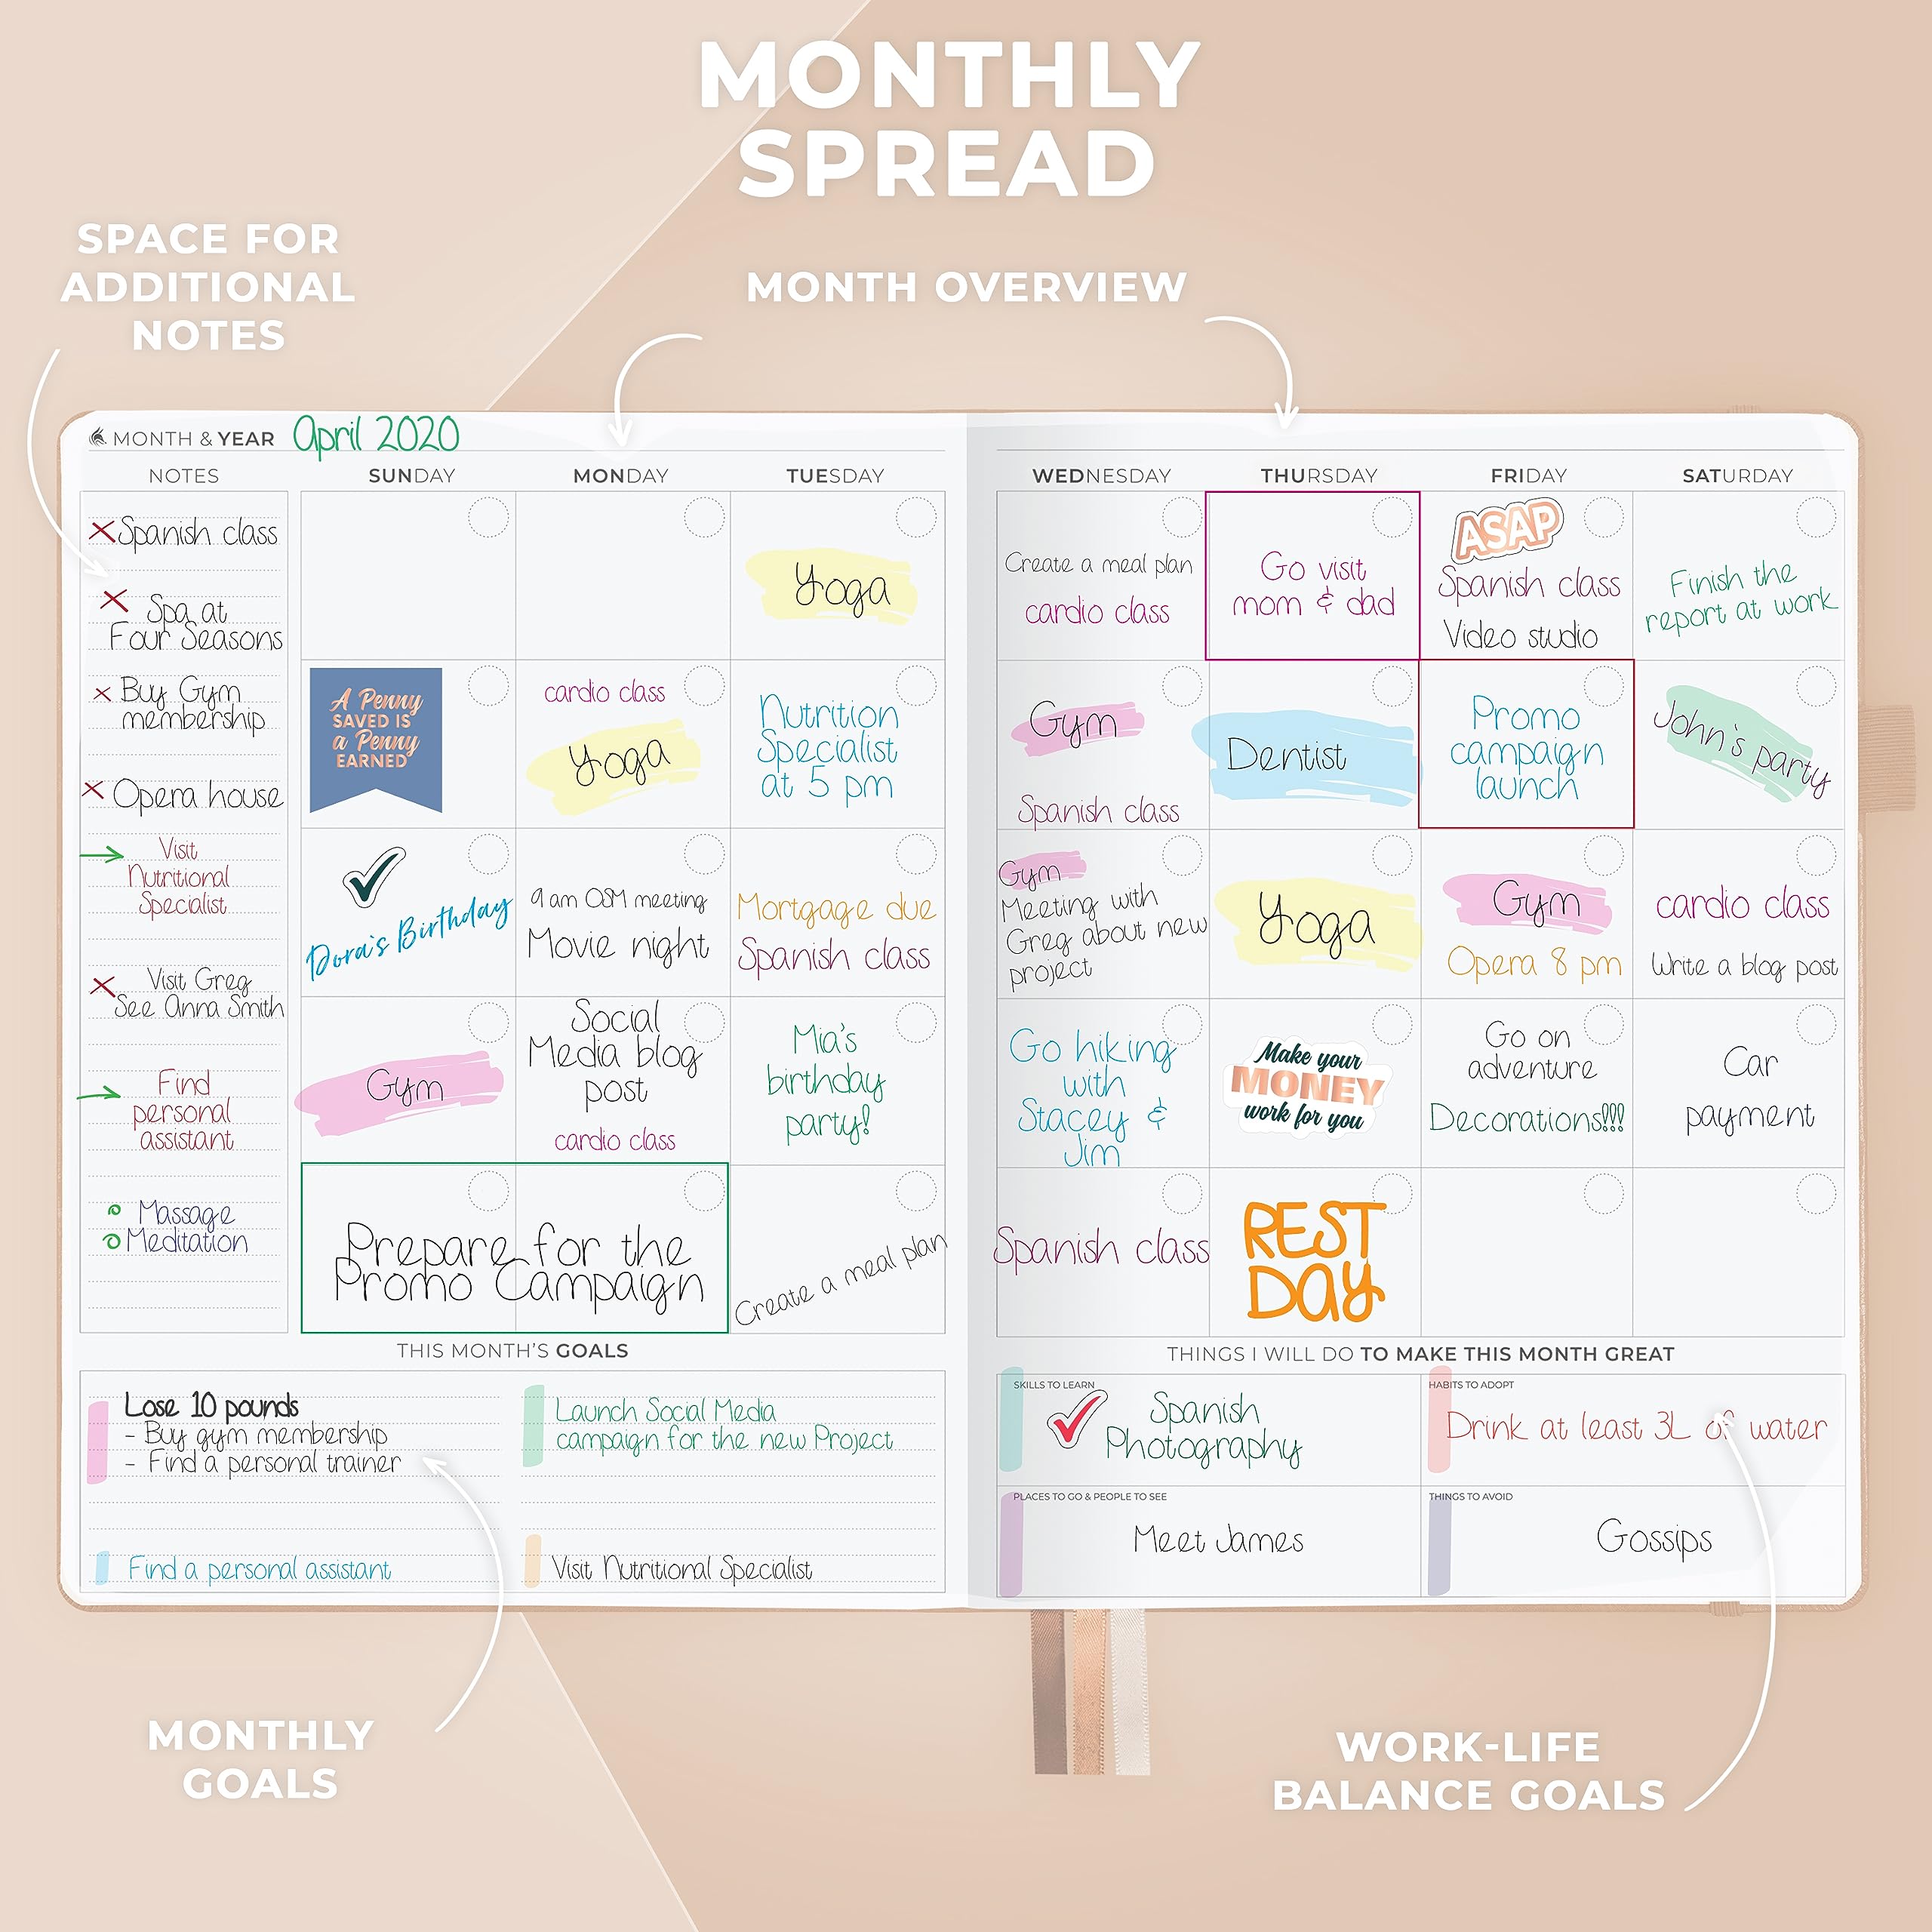 MONTHLY
SPREAD
SPACE FOR
ADDITIONAL
NOTES
MONTH OVERVIEW
MONTH & YEAR April 2020
NOTES
SUNDAY MONDAY TUESDAY WEDNESDAY THURSDAY FRIDAY SATURDAY
Spanish class
Spa at
Four Seasons
Buy Gym
membership
Opera house
Visit
Nutritional
Specialist
Visit Greg
See Anna Smith
Find
personal
assistant
Massage
Meditation
Yoga
Create a meal plan
cardio class
Go visit
mom & dad
ASAP
Spanish class
Video studio
Finish the
report at work
A Penny
SAVED IS
a Penny
EARNED
cardio class
Yoga
Nutrition
Specialist
at 5 pm
Gym
Spanish class
Dentist
Promo
campaign
launch
John's party
Dora's Birthday
9 am OSM meeting
Movie night
Mortgage due
Spanish class
Gym
Meeting with
Greg about new
project
Yoga
Gym
Opera 8 pm
cardio class
Write a blog post
Gym
Social
Media blog
post
cardio class
Mia's
birthday
party!
Go hiking
with
Stacey &
Jim
Make your
MONEY
work for you
Go on
adventure
Decorations!!!
Car
payment
Prepare for the
Promo Campaign
Create a meal plan
Spanish class
REST
DAY
THIS MONTH'S GOALS
Lose 10 pounds
- Buy gym membership
- Find a personal trainer
Launch Social Media
campaign for the new Project
Find a personal assistant
Visit Nutritional Specialist
THINGS I WILL DO TO MAKE THIS MONTH GREAT
SKILLS TO LEARN
Spanish
Photography
HABITS TO ADOPT
Drink at least 3L of water
PLACES TO GO & PEOPLE TO SEE
Meet James
THINGS TO AVOID
Gossips
MONTHLY
GOALS
WORK-LIFE
BALANCE GOALS